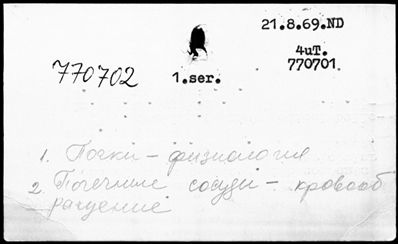 21.8.69.ND
4uT.
770702
1.ser.
770701.
1. Почки – физиология
2. Почечные сосуды – кровооб
ращение